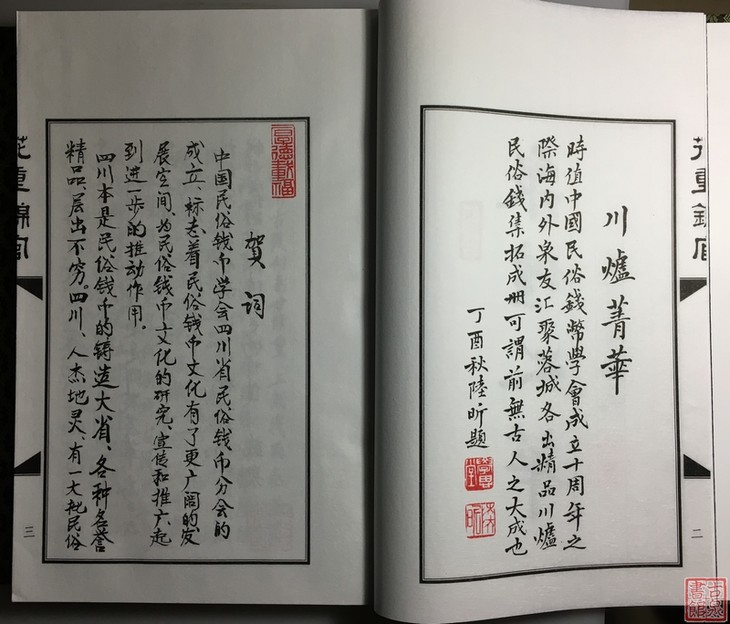 花重錦官
二
川爐菁華
時值中國民俗錢幣學會成立十周年之
際海內外泉友汇聚蓉城各出精品川爐
民俗錢集拓成册可謂前無古人之大成也
丁酉秋陸昕題
贺词
中国民俗钱币学会四川省民俗钱币分会的
成立、标志着民俗钱币文化有了更广阔的发
展空间、为民俗钱币文化的研究、宣传和推广、起
到进一步的推动作用。
四川本是民俗钱币的铸造大省、各种名誉
精品、层出不穷。四川、人杰地灵、有一大批民俗
花重錦官
三
古泉書館